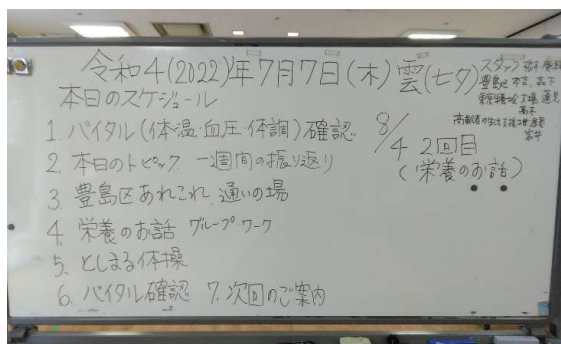 令和4(2022)年7月7日(木)雲(七夕)
スタッフ
豊島区
本日のスケジュール
1. バイタル(体温・血圧・体調)確認
8/4 2回目
(栄養のお話)
2. 本日のトピック 一週間の振り返り
3. 豊島区あれこれ 通いの場
4. 栄養のお話 グループ・ワーク
5. としまる体操
6. バイタル確認 7. 次回のご案内